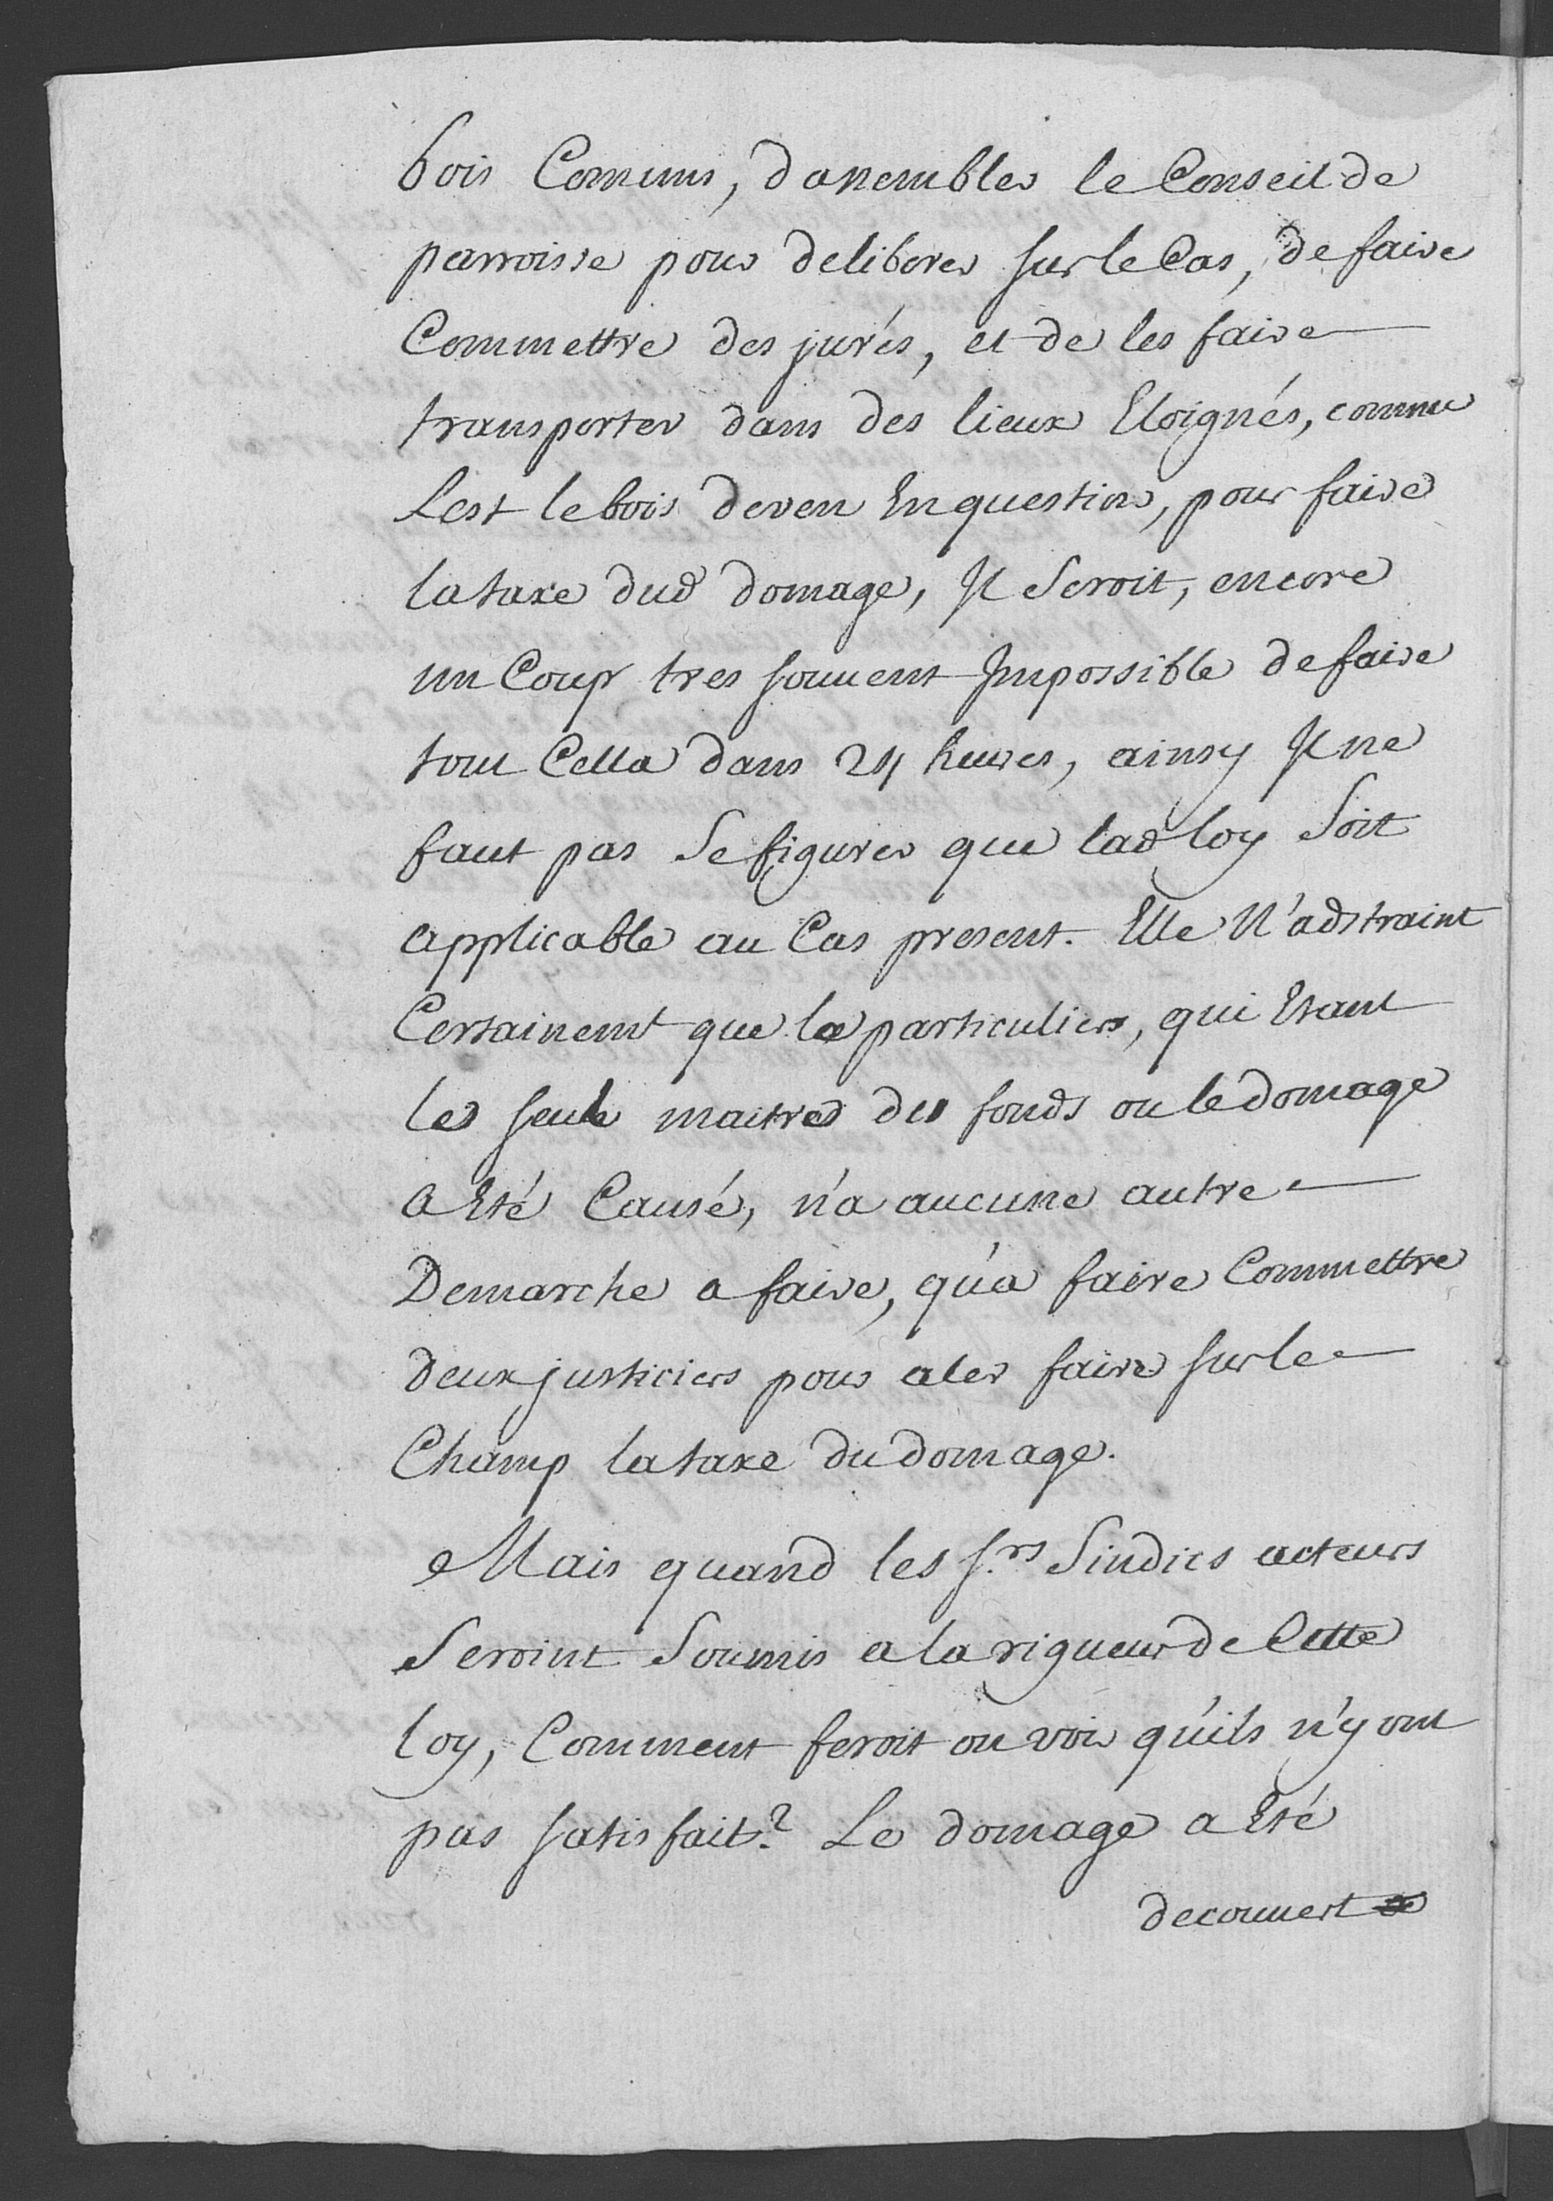 bois Comuns, d'assembler le Conseil de
parroisse pour deliberer sur le Cas, de faire
Commettre des jurés, et de les faire
transporter dans des lieux Eloignés, comme
Lest le bois deven En question, pour faire
la taxe dud domage, Il Seroit, encore
un Coup tres souvent Impossible de faire
tout Cella dans 24 heures, ainsy Il ne
faut pas Se figurer que lad loy Soit
applicable au Cas present. Elle N'adstraint
Certainemt que le particulier, qui Etant
le seul maitre du fonds ou le domage
a Eté Causé, n'a aucune autre
Demarche a faire, qu'a faire Commettre
deux justiciers pour aler faire sur le
Champ la taxe du domage.
Mais quand les s.rs Sindics acteurs
Seroint Soumis a la rigueur de Cette
loy, Comment feroit on voir qu'ils n'y ont
pas satisfait? Le domage a Eté
decouvert